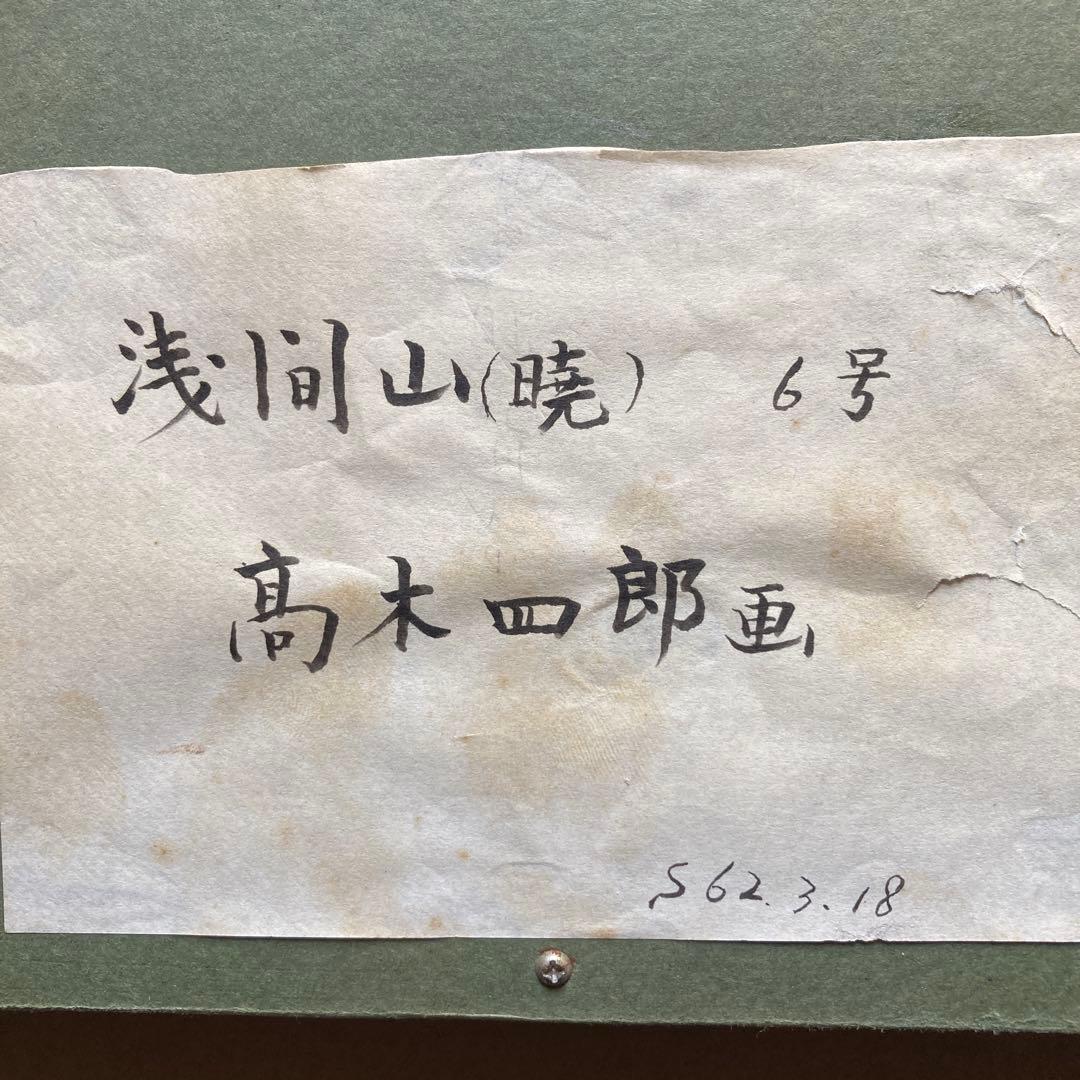 浅間山(暁) 6号
髙木四郎画
S62.3.18